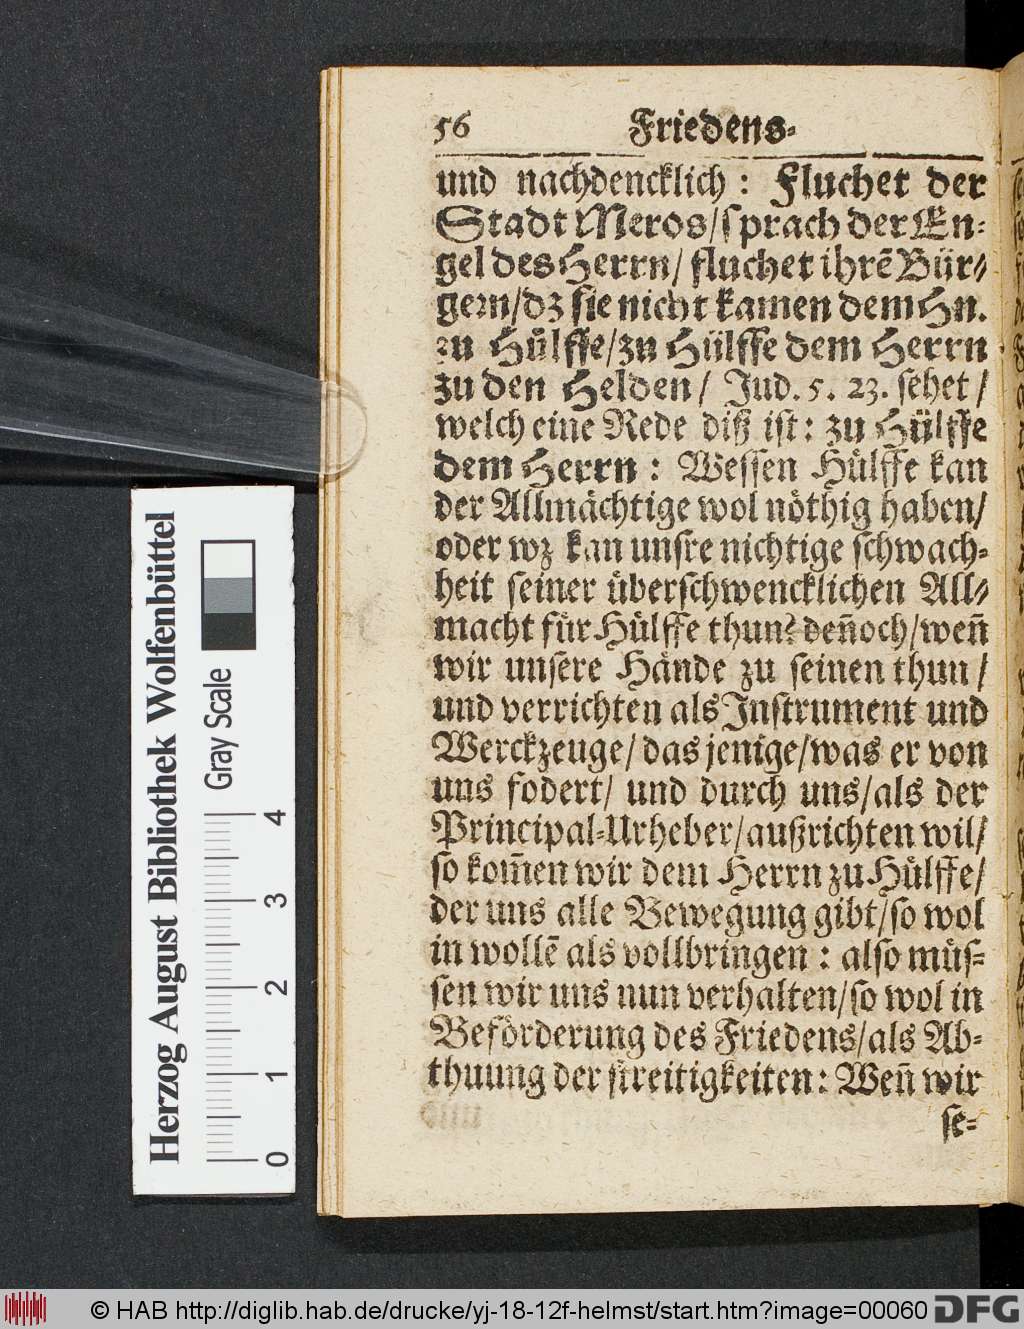 56 Friedens-
und nachdencklich : Fluchet der
Stadt Meros/ sprach der En-
gel des Herrn/ fluchet ihrē Bür-
gern/ dz sie nicht kamen dem Hn.
zu Hülffe/ zu Hülffe dem Herrn
zu den Helden/ Jud. 5. 23. sehet/
welch eine Rede diß ist: zu Hülffe
dem Herrn : Wessen Hülffe kan
der Allmächtige wol nöthig haben/
oder wz kan unsre nichtige schwach-
heit seiner überschwencklichen All-
macht für Hülffe thun? deñoch/ weñ
wir unsere Hände zu seinen thun/
und verrichten als Instrument und
Werckzeuge/ das jenige/ was er von
uns fodert/ und durch uns/ als der
Principal-Urheber/ außrichten wil/
so kom̃en wir dem Herrn zu Hülffe/
der uns alle Bewegung gibt/ so wol
in wollē als vollbringen : also müs-
sen wir uns nun verhalten/ so wol in
Beförderung des Friedens/ als Ab-
thuung der streitigkeiten: Weñ wir
se-
Herzog August Bibliothek Wolfenbüttel
Gray Scale
0 1 2 3 4
© HAB http://diglib.hab.de/drucke/yj-18-12f-helmst/start.htm?image=00060 DFG